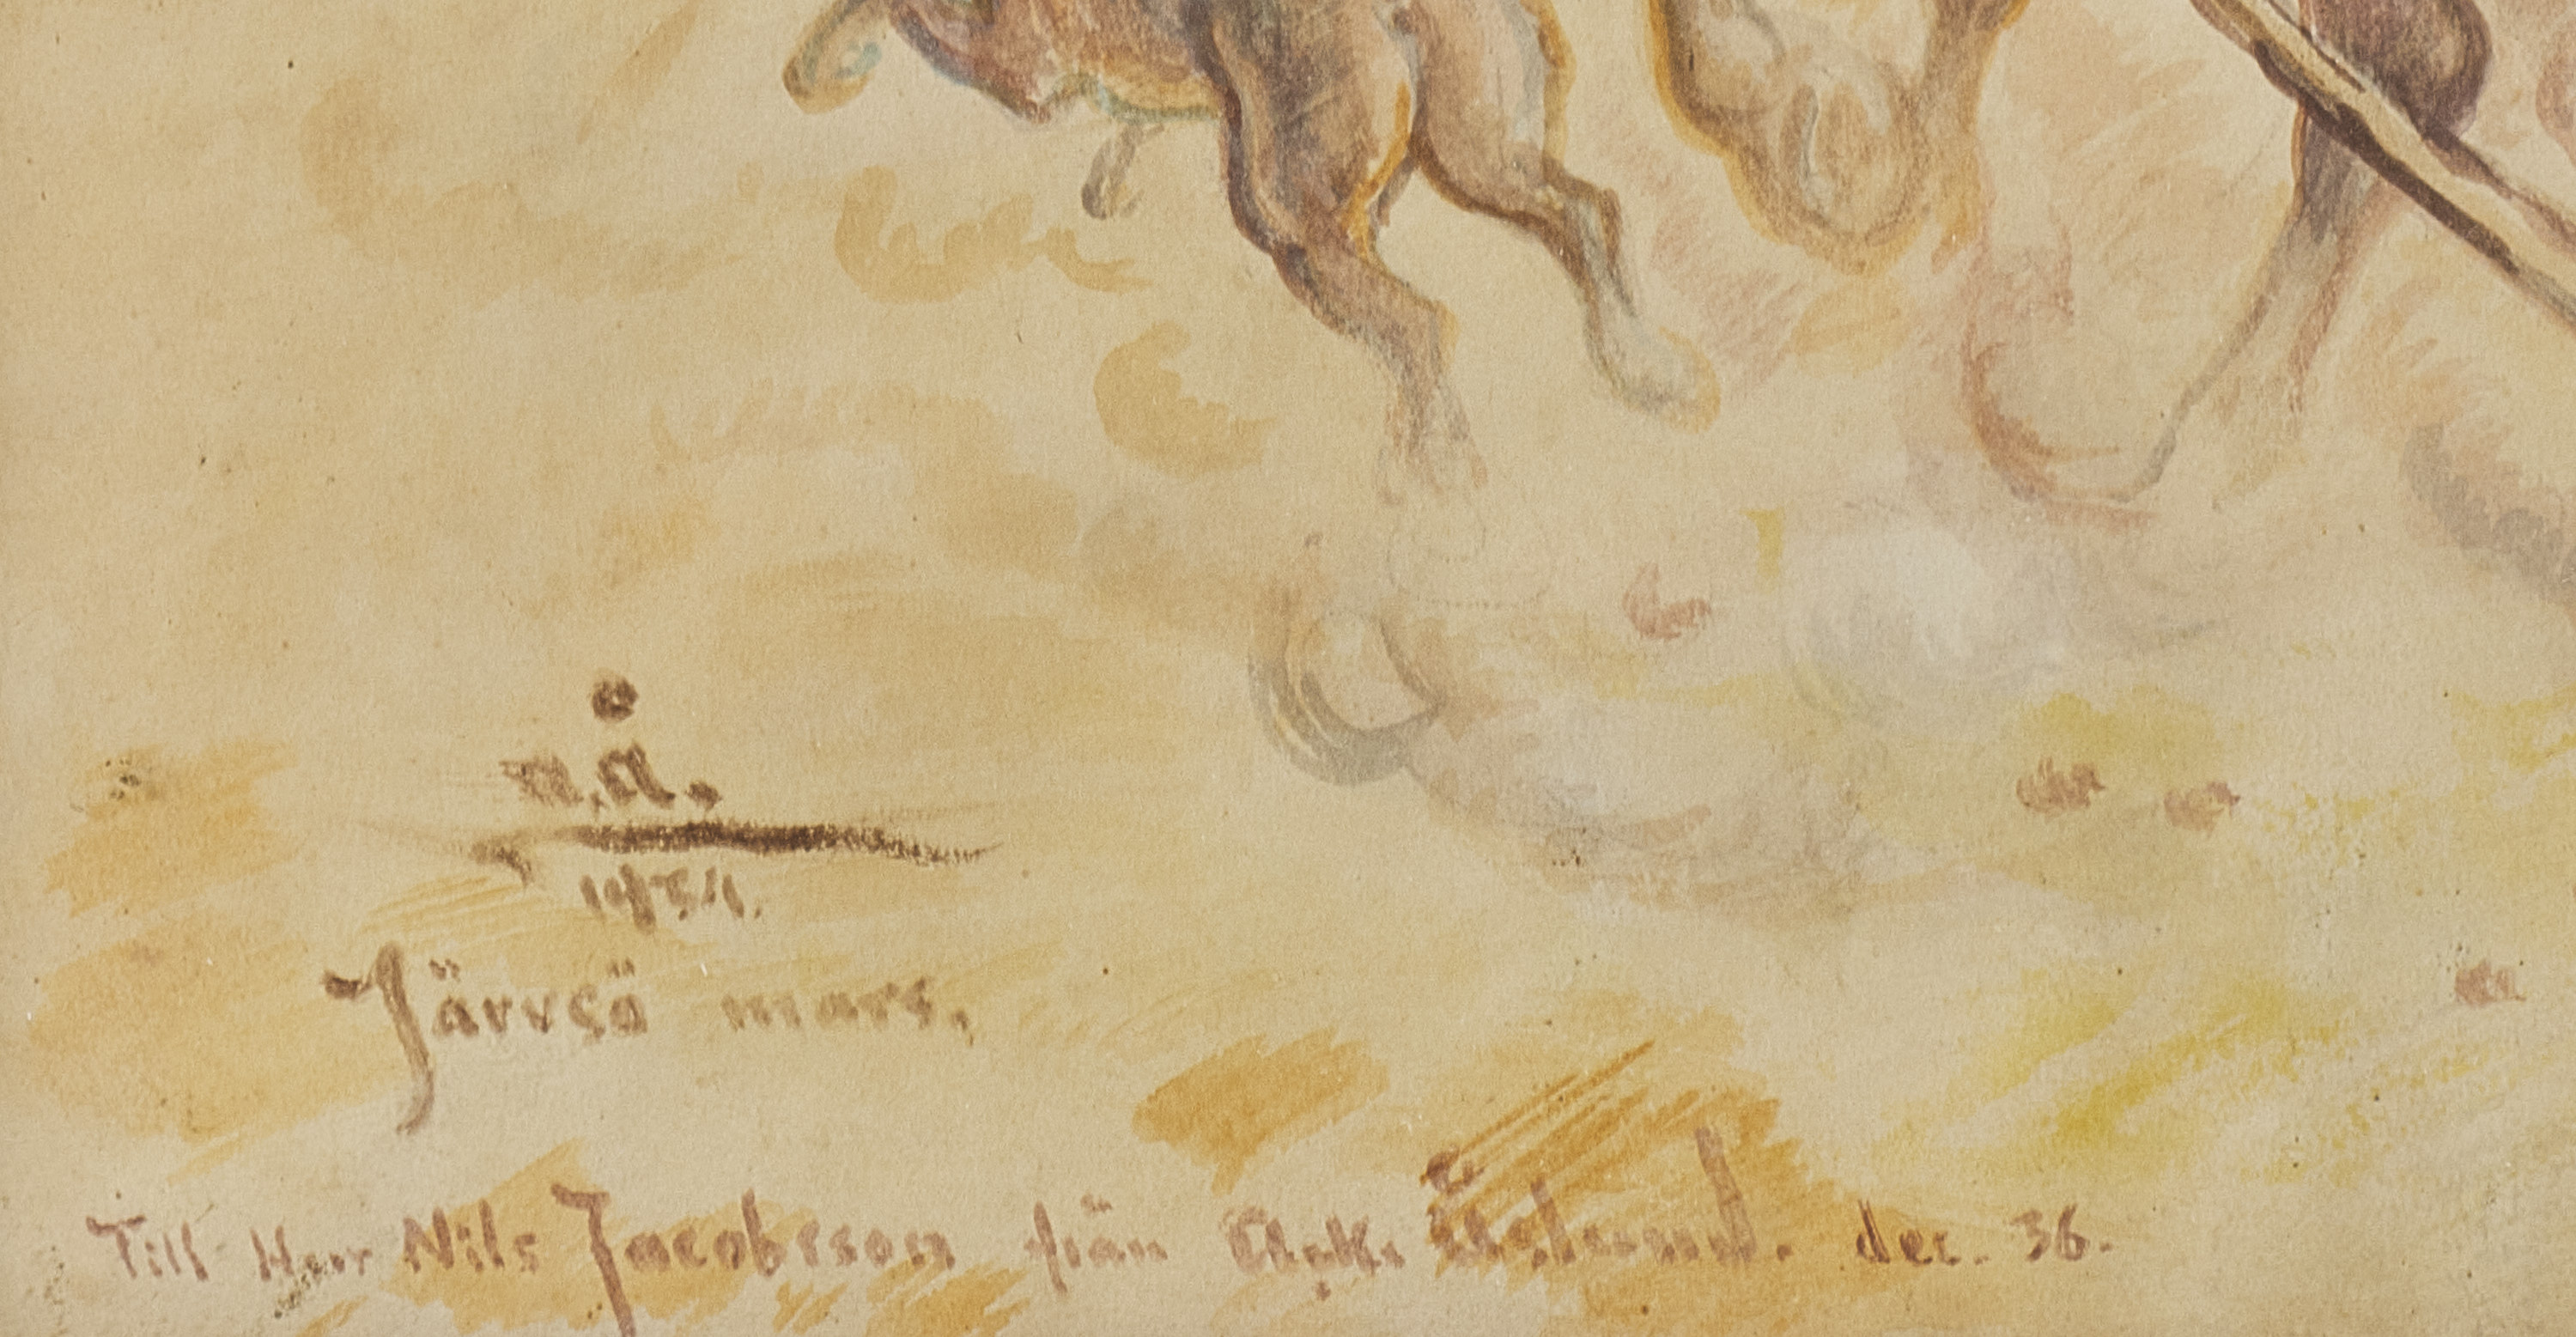 a.å.
1934.
Järvsö mars.
Till Herr Nils Jacobsson från Acke Åslund. dec. 36.